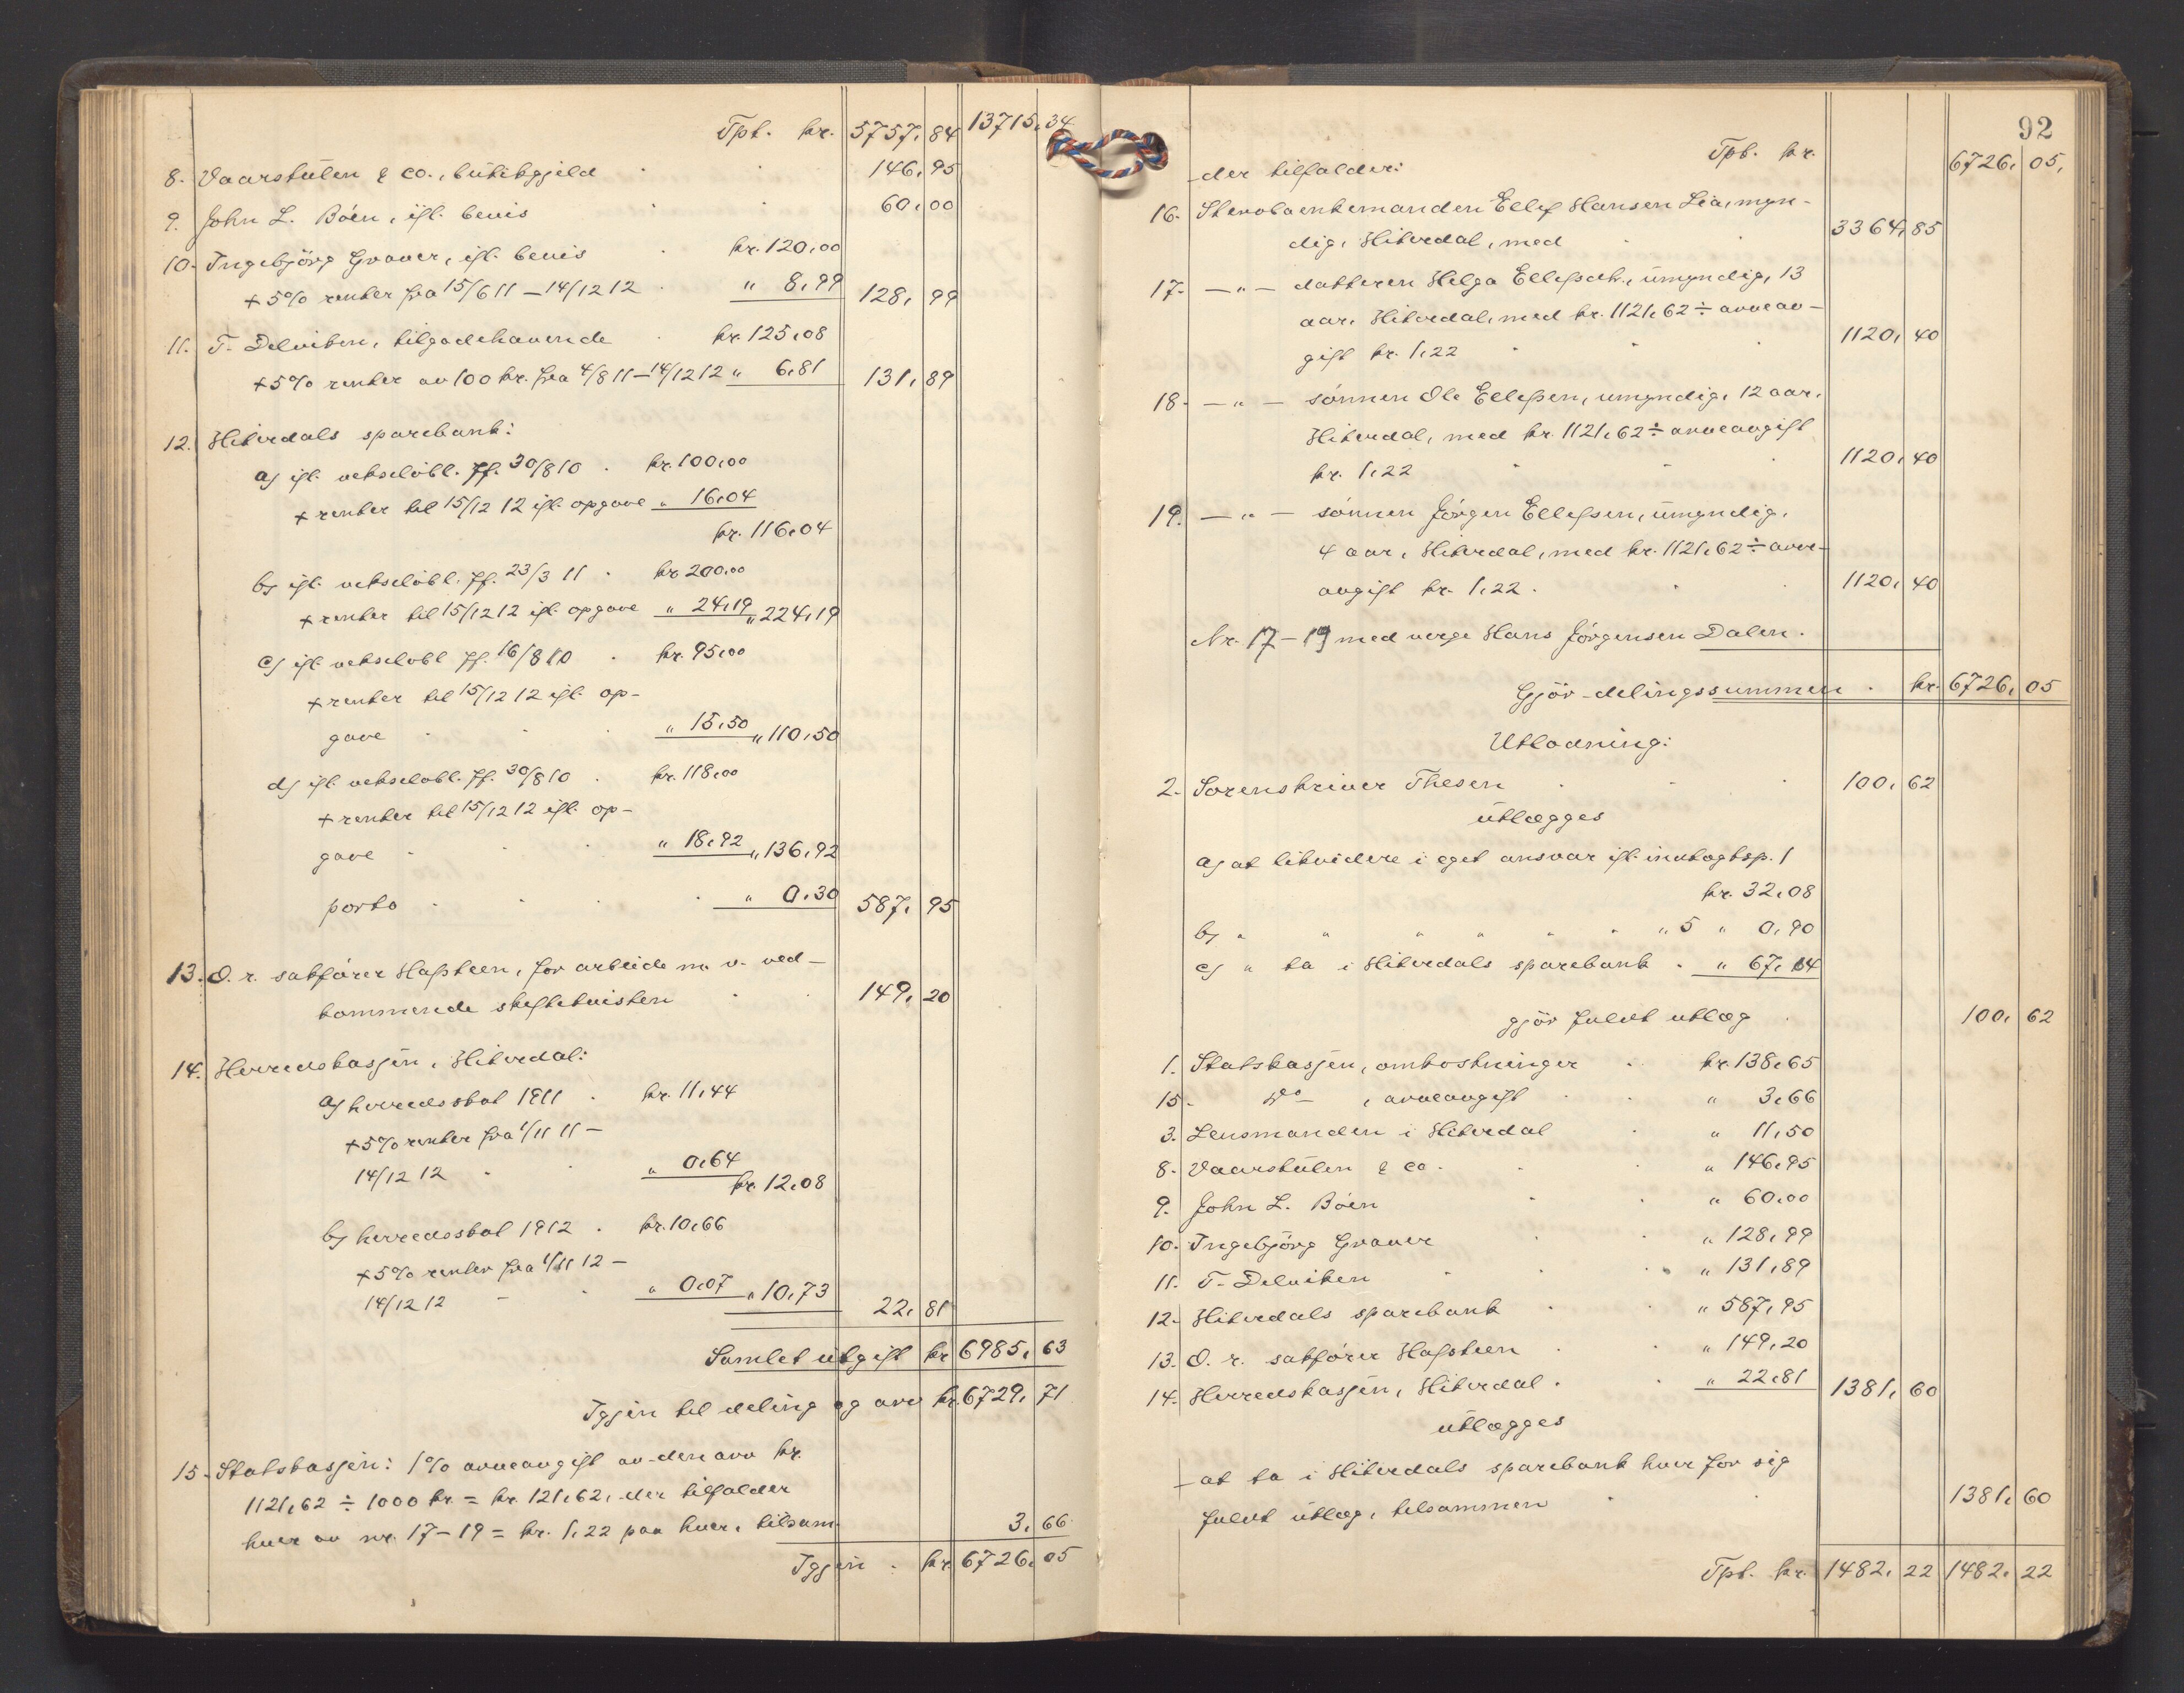 Tpt. kr. 5757,84 13715,34
8. Vaarstulen & co., butikgjeld 146,95
9. John L. Böen, ifl. bevis 60,00
10. Ingebjörg Graver, ifl. bevis kr. 120,00
+ 5% renter fra 15/6 11 – 14/12 12 " 8,99 128,99
11. T. Delviken, tilgodehavende kr. 125,08
+ 5% renter av 100 kr. fra 4/8 11 – 14/12 12 " 6,81 131,89
12. Hiterdals sparebank:
a) ifl. vekselobl. pf. 30/8 10 kr. 100,00
+ renter til 15/12 12 ifl. opgave " 16,04
kr. 116,04
b) ifl. vekselobl. pf. 23/3 11 kr. 200,00
+ renter til 15/12 12 ifl. opgave " 24,19 " 224,19
c) ifl. vekselobl. pf. 16/8 10 kr. 95,00
+ renter til 15/12 12 ifl. op-
gave " 15,50 " 110,50
d) ifl. vekselobl. pf. 30/8 10 kr. 118,00
+ renter til 15/12 12 ifl. op-
gave " 18,92 " 136,92
porto " 0,30 587,95
13. O. r. sakförer Hafsteen, for arbeide m. v. ved-
kommende skiftetvisten 149,20
14. Herredskassen, Hiterdal:
a) herredsskat 1911 kr. 11,44
+ 5% renter fra 1/11 11 –
14/12 12 " 0,64
kr. 12,08
b) herredsskat 1912 kr. 10,66
+ 5% renter fra 1/11 12 –
14/12 12 " 0,07 " 10,73 22,81
Samlet utgift kr 6985,63
Igjen til deling og arv kr. 6729,71
15. Statskassen: 1% arveavgift av den arv kr.
1121,62 ÷ 1000 kr = kr. 121,62, der tilfalder
hver av nr. 17 – 19 = kr. 1,22 paa hver, tilsam. 3,66
Igjen kr. 6726,05
92
Tpt. kr. 6726,05,
der tilfalder:
16. Stervboenkemanden Ellef Hansen Lia, myn-
dig, Hiterdal, med 3364,85
17. — " — datteren Helga Ellefsdtr., umyndig, 13
aar, Hiterdal, med kr. 1121,62 ÷ arveav-
gift kr. 1,22 1120,40
18. — " — sönnen Ole Ellefsen, umyndig, 12 aar,
Hiterdal, med kr. 1121,62 ÷ arveavgift
kr. 1,22 1120,40
19. — " — sönnen Jörgen Ellefsen, umyndig,
4 aar, Hiterdal, med kr. 1121,62 ÷ arve-
avgift kr. 1,22. 1120,40
Nr. 17 – 19 med verge Hans Jörgensen Dalen.
Gjör delingssummen kr. 6726,05
Utlodning:
2. Sorenskriver Thesen 100,62
utlægges
a) at likvidere i eget ansvar ifl. indtægtsp. 1
kr. 32,08
b) " " " " " " " 5 " 0,90
c) " ta i Hiterdals sparebank " 67,64
gjör fuldt utlæg 100,62
1. Statskassen, omkostninger kr. 138,65
15. Do , arveavgift " 3,66
3. Lensmanden i Hiterdal " 11,50
8. Vaarstulen & co. " 146,95
9. John L. Böen " 60,00
10. Ingebjörg Graver " 128,99
11. T. Delviken " 131,89
12. Hiterdals sparebank " 587,95
13. O. r. sakförer Hafsteen " 149,20
14. Herredskassen, Hiterdal. " 22,81 1381,60
utlægges
– at ta i Hiterdals sparebank hver for sig
fuldt utlæg, tilsammen 1381,60
Tpt. kr. 1482,22 1482,22